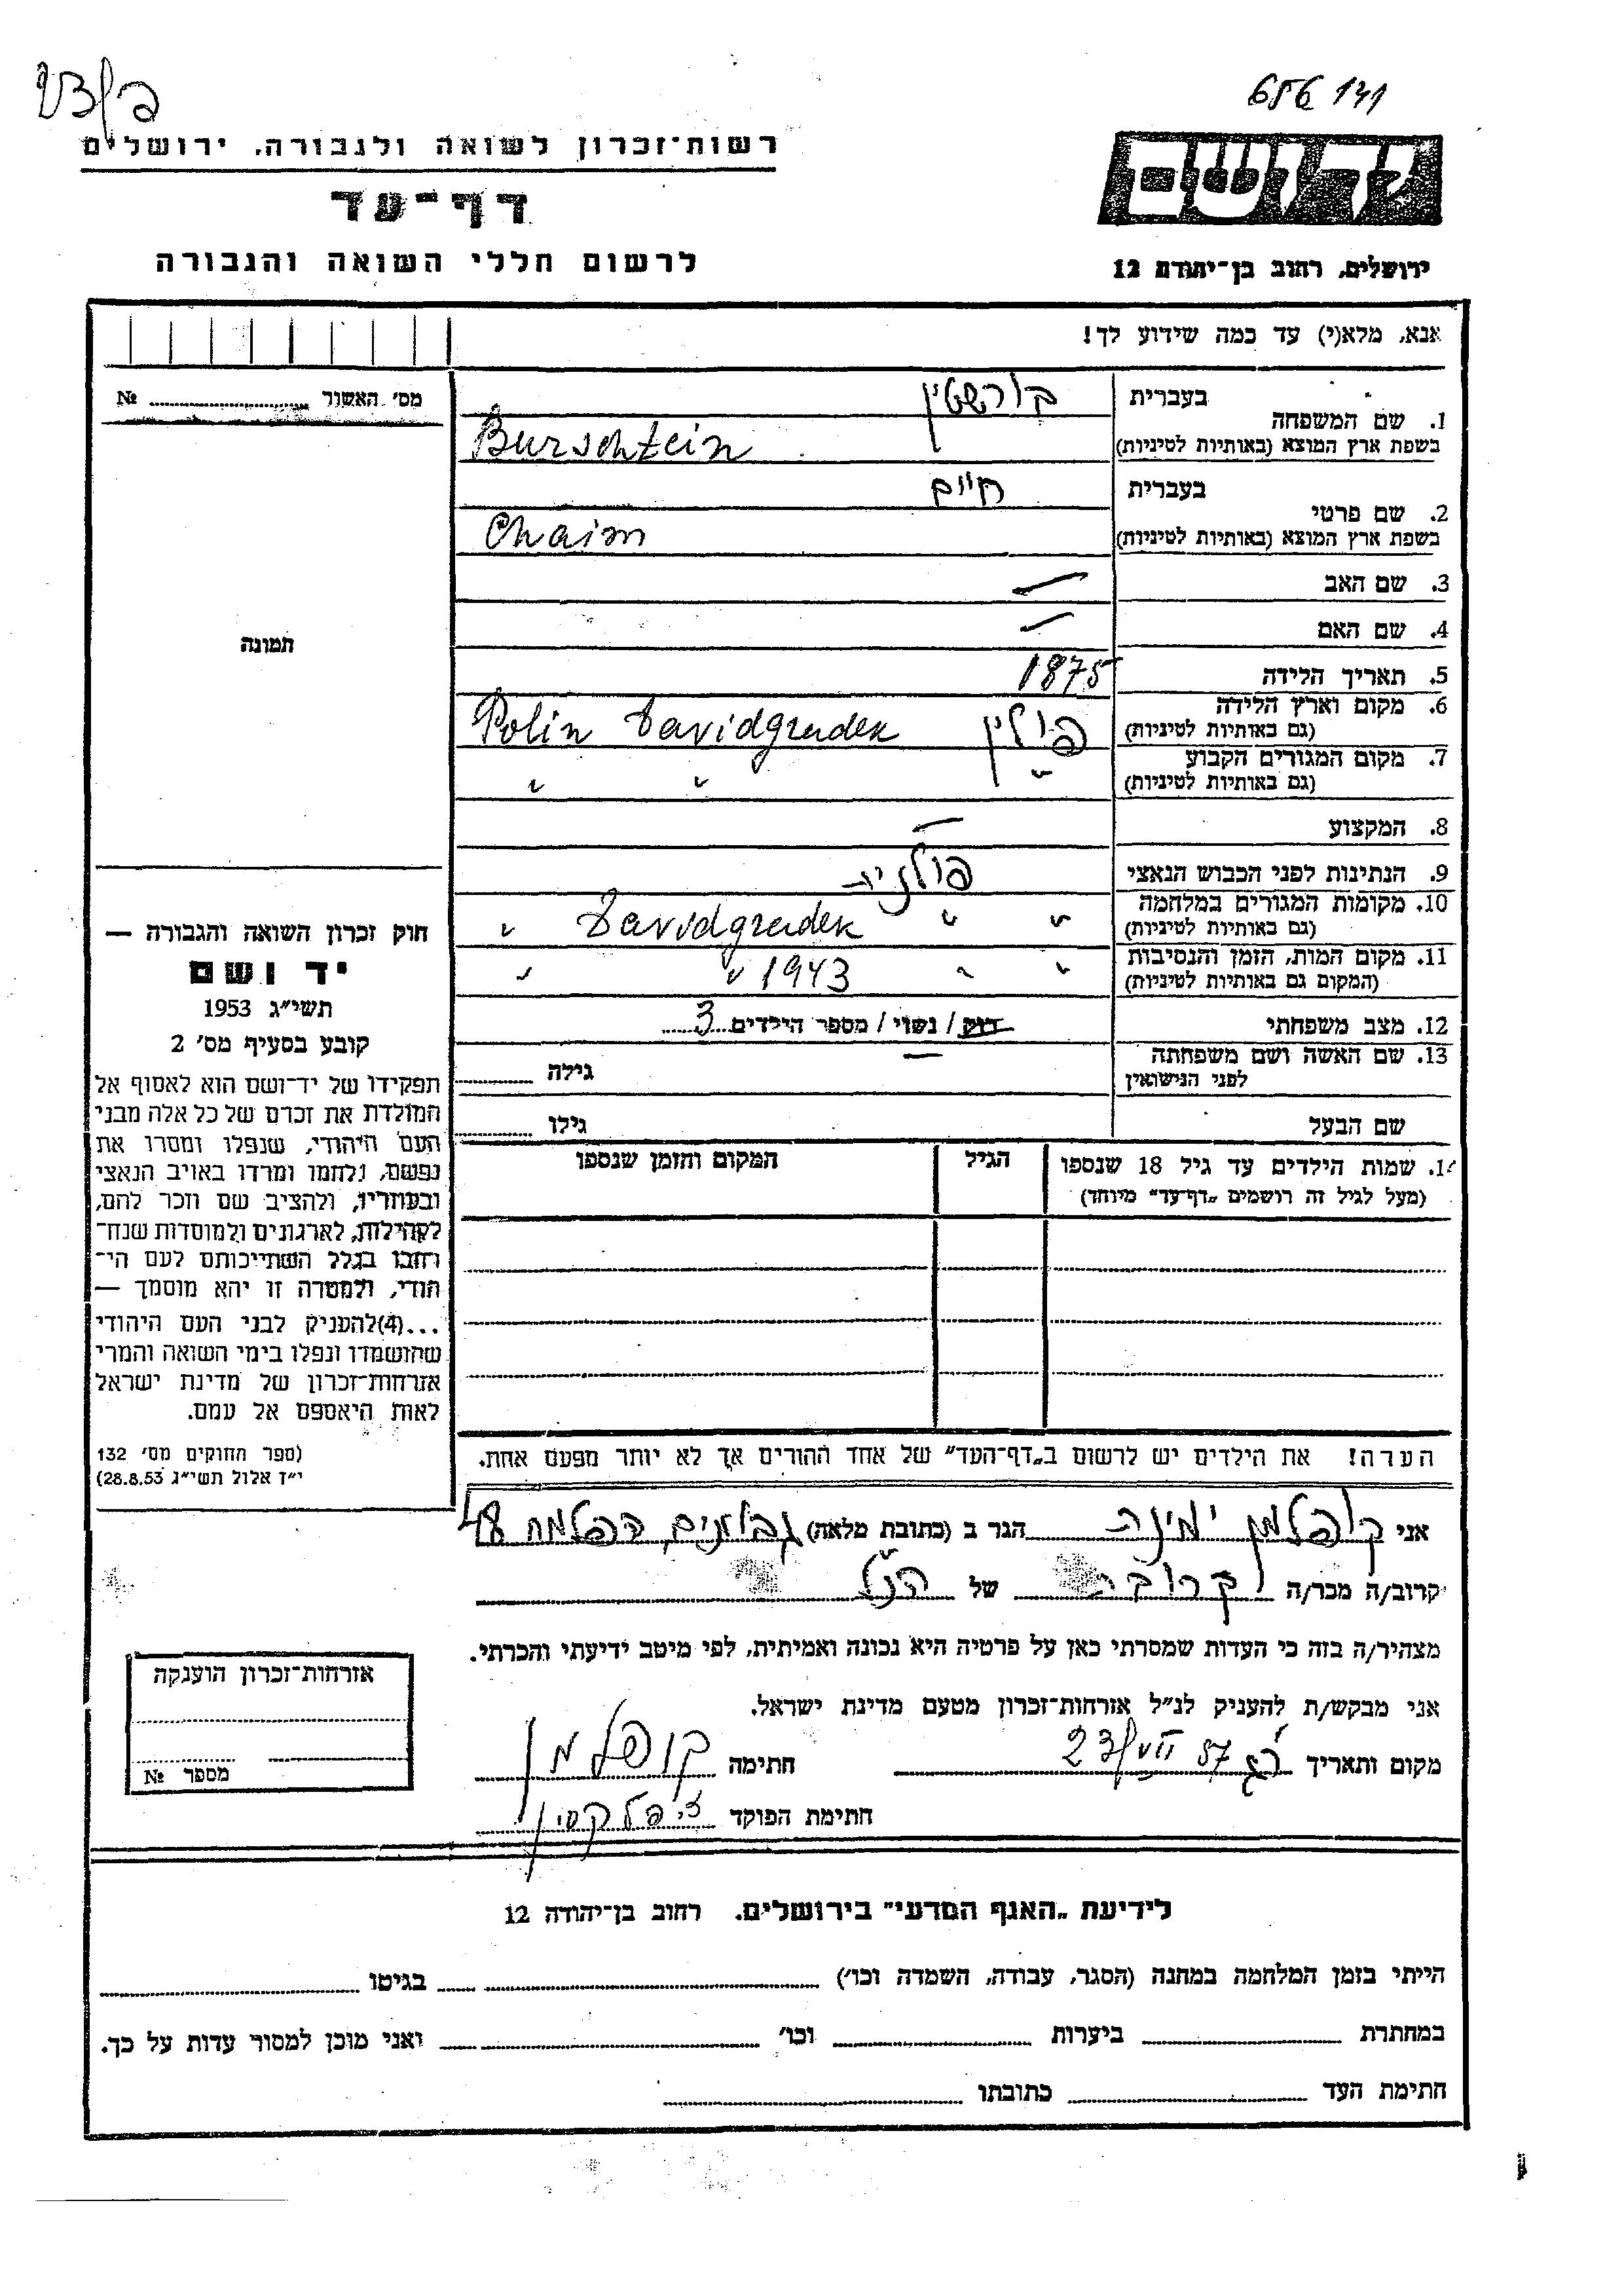 656 141
רשות־זכרון לשואה ולגבורה, ירושלים
ידושם
דף־עד
לרשום חללי השואה והגבורה
ירושלים, רחוב בן־יהודה 12
אנא, מלא(י) עד כמה שידוע לך!
מס׳ האשור № 
בעברית בורשטין
1. שם המשפחה
בשפת ארץ המוצא (באותיות לטיניות) Burschtein
בעברית חיים
2. שם פרטי
בשפת ארץ המוצא (באותיות לטיניות) Chaim
3. שם האב —
4. שם האם —
תמונה
5. תאריך הלידה 1875
6. מקום וארץ הלידה
(גם באותיות לטיניות) פולין Polin Davidgrudek
7. מקום המגורים הקבוע
(גם באותיות לטיניות) " " "
8. המקצוע —
9. הנתינות לפני הכבוש הנאצי פולנית
10. מקומות המגורים במלחמה
(גם באותיות לטיניות) " " Davidgrudek "
11. מקום המות, הזמן והנסיבות
(המקום גם באותיות לטיניות) " " " 1943 "
12. מצב משפחתי רווק / נשוי / מספר הילדים 3
13. שם האשה ושם משפחתה
לפני הנישואין — גילה
שם הבעל גילו
14. שמות הילדים עד גיל 18 שנספו
(מעל לגיל זה רושמים „דף־עד״ מיוחד)
הגיל
המקום והזמן שנספו
הערה! את הילדים יש לרשום ב„דף־העד״ של אחד ההורים אך לא יותר מפעם אחת.
חוק זכרון השואה והגבורה —
יד ושם
תשי״ג 1953
קובע בסעיף מס׳ 2
תפקידו של יד־ושם הוא לאסוף אל
המולדת את זכרם של כל אלה מבני
העם היהודי, שנפלו ומסרו את
נפשם, נלחמו ומרדו באויב הנאצי
ובעוזריו, ולהציב שם וזכר להם,
לקהילות, לארגונים ולמוסדות שנח־
רבו בגלל השתייכותם לעם הי־
הודי, ולמטרה זו יהא מוסמך —
...(4)להעניק לבני העם היהודי
שהושמדו ונפלו בימי השואה והמרי
אזרחות־זכרון של מדינת ישראל
לאות היאספם אל עמם.
(ספר החוקים מס׳ 132
י״ז אלול תשי״ג 28.8.53)
אני קופלמן ימינה הגר ב (כתובת מלאה) גבעתיים הפלמח 48
קרוב/ה מכר/ה קרובה של הנ״ל
מצהיר/ה בזה כי העדות שמסרתי כאן על פרטיה היא נכונה ואמיתית, לפי מיטב ידיעתי והכרתי.
אני מבקש/ת להעניק לנ״ל אזרחות־זכרון מטעם מדינת ישראל.
מקום ותאריך 23/VII 57 חתימה קופלמן
חתימת הפוקד
אזרחות־זכרון הוענקה
מספר №
לידיעת „האגף המדעי״ בירושלים. רחוב בן־יהודה 12
הייתי בזמן המלחמה במחנה (הסגר, עבודה, השמדה וכו׳) בגיטו
במחתרת ביערות וכו׳ ואני מוכן למסור עדות על כך.
חתימת העד כתובתו